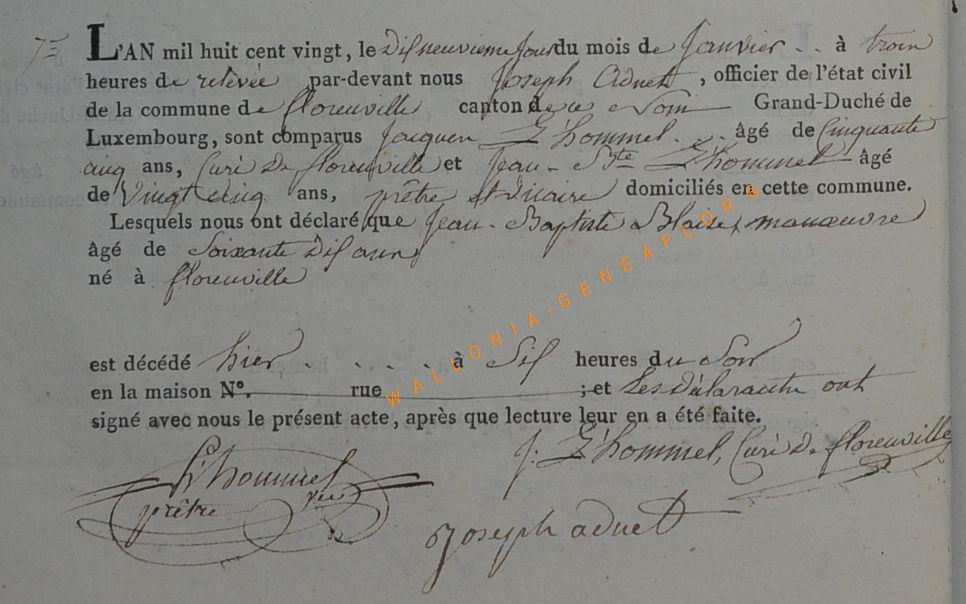 7e
L'AN mil huit cent vingt, le dixneuvieme jour du mois de janvier . . à trois
heures de relevée par-devant nous Joseph Adnet, officier de l'état civil
de la commune de florenville canton de ce nom Grand-Duché de
Luxembourg, sont comparus jacques L'hommel . . âgé de Cinquante
cinq ans, Curé de florenville et Jean-Bte L'hommel âgé
de Vingt cinq ans, prêtre et vicaire domiciliés en cette commune.
Lesquels nous ont déclaré que jean-Baptiste Blaise, manœuvre
âgé de Soixante dix ans
né à florenville
est décédé hier . . . . à Six heures du Soir
en la maison N°. rue ; et Les déclarants ont
signé avec nous le présent acte, après que lecture leur en a été faite.
L'hommel
prêtre vic
J. L'hommel, Curé de florenville
Joseph adnet
WALLONIA-GENEAFLORE